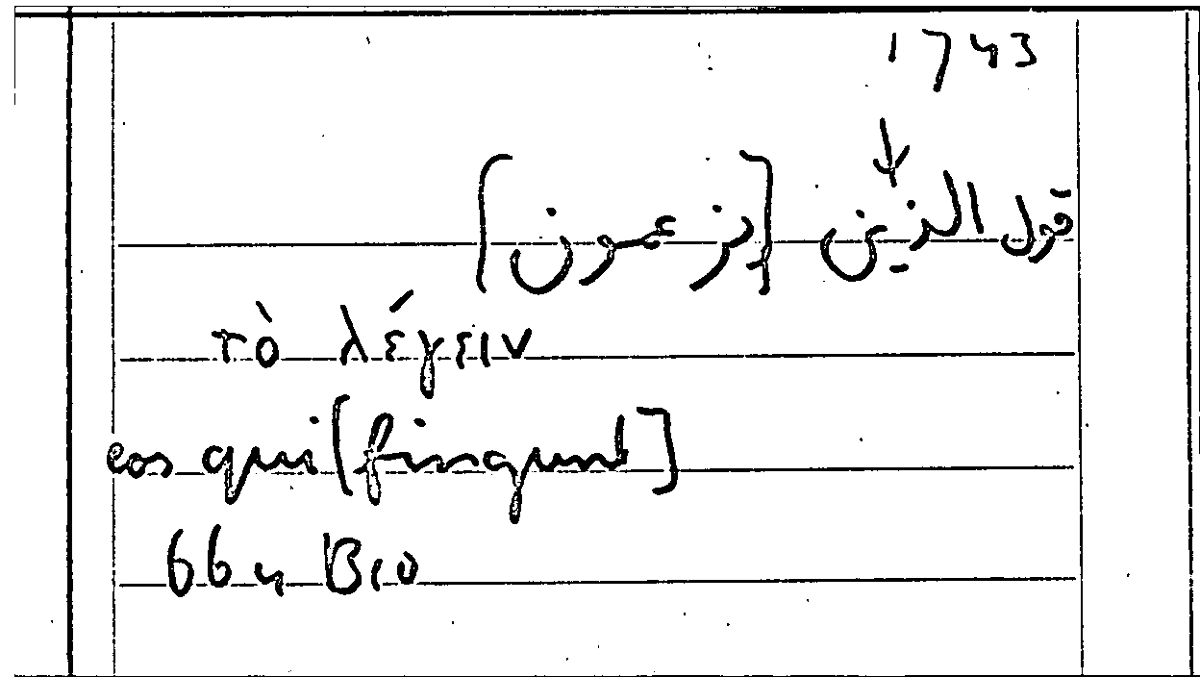 1743
↓
قول الذين [يزعمون]
τὸ λέγειν
eos qui [finqunt]
664 B10